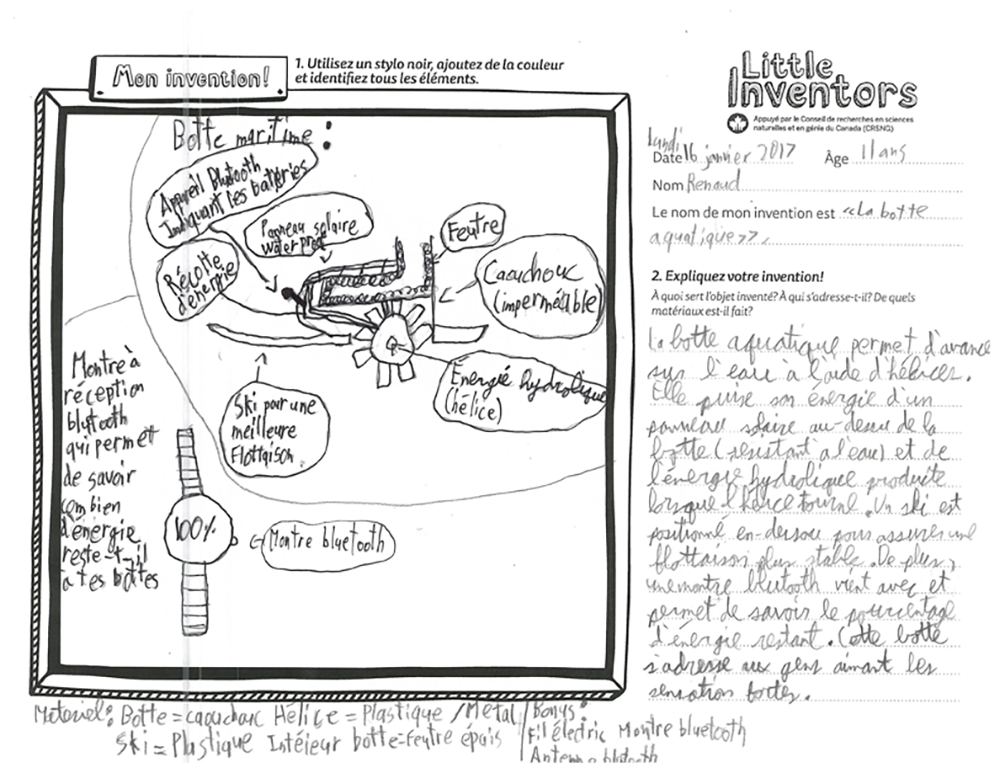 Mon invention!
1. Utilisez un stylo noir, ajoutez de la couleur
et identifiez tous les éléments.
Little
Inventors
Appuyé par le Conseil de recherches en sciences
naturelles et en génie du Canada (CRSNG)
Botte maritime :
Appareil Blutooth
Indiquant les batéries
Panneau solaire
waterproof
Récolte
d'énergie
Feutre
Caouchouc
(imperméable)
Energie hydrolique
(hélice)
Ski pour une
meilleure
Flottaison.
Montre à
réception
blutooth
qui permet
de savoir
combien
d'énergie
reste-t-il
a tes bottes
100%
Montre bluetooth
lundi
Date 16 janvier 2017 Âge 11 ans
Nom Renaud
Le nom de mon invention est «La botte
aquatique».
2. Expliquez votre invention!
À quoi sert l'objet inventé? À qui s'adresse-t-il? De quels
matériaux est-il fait?
La botte aquatique permet d'avance
sur l'eau à l'aide d'hélices.
Elle puise son énergie d'un
panneau solaire au-dessu de la
botte (résistant a l'eau) et de
l'énergie hydrolique produite
lorsque l'hélice tourne. Un ski est
positionné en-dessou pour assurer une
flottaison plus stable. De plus,
une montre blutooth vient avec et
permet de savoir le pourcentage
d'énergie restant. Cette botte
s'adresse aux gens aimant les
sensation fortes.
Materiel: Botte = caouchouc Hélice = Plastique / Métal / Bonus:
Ski = Plastique Intéieur botte-feutre épais / Fil électric Montre bluetooth
Antenne blutooth